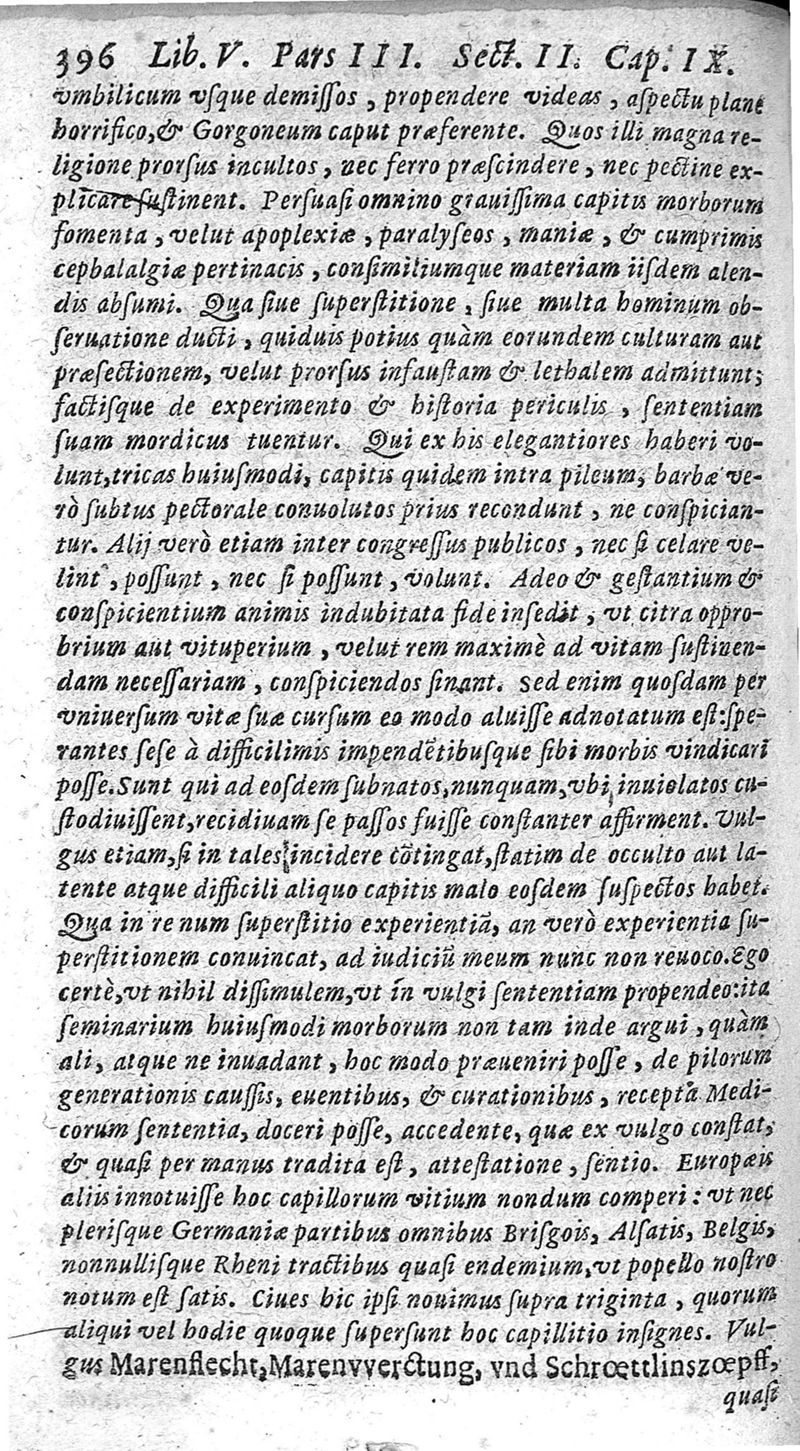 396 Lib. V. Pars III. Sect. II. Cap. IX.
vmbilicum vsque demissos, propendere videas, aspectu plane
horrifico, & Gorgoneum caput præferente. Quos illi magna re-
ligione prorsus incultos, nec ferro præscindere, nec pectine ex-
plicare sustinent. Persuasi omnino grauissima capitis morborum
fomenta, velut apoplexiæ, paralyseos, maniæ, & cumprimis
cephalalgiæ pertinacis, consimiliumque materiam iisdem alen-
dis absumi. Qua siue superstitione, siue multa hominum ob-
seruatione ducti, quiduis potius quàm eorundem culturam aut
præsectionem, velut prorsus infaustam & lethalem admittunt;
factisque de experimento & historia periculis, sententiam
suam mordicus tuentur. Qui ex his elegantiores haberi vo-
lunt, tricas huiusmodi, capitis quidem intra pileum, barbæ ve-
rò subtus pectorale conuolutos prius recondunt, ne conspician-
tur. Alij verò etiam inter congressus publicos, nec si celare ve-
lint, possunt, nec si possunt, volunt. Adeo & gestantium &
conspicientium animis indubitata fide insedit, vt citra oppro-
brium aut vituperium, velut rem maximè ad vitam sustinen-
dam necessariam, conspiciendos sinant. Sed enim quosdam per
vniuersum vitæ suæ cursum eo modo aluisse adnotatum est: spe-
rantes sese à difficilimis impendētibusque sibi morbis vindicari
posse. Sunt qui ad eosdem subnatos, nunquam, vbi inuiolatos cu-
stodiuissent, recidiuam se passos fuisse constanter affirment. Vul-
gus etiam, si in tales incidere cōtingat, statim de occulto aut la-
tente atque difficili aliquo capitis malo eosdem suspectos habet.
Qua in re num superstitio experientiā, an verò experientia su-
perstitionem conuincat, ad iudiciū meum nunc non reuoco. Ego
certè, vt nihil dissimulem, vt in vulgi sententiam propendeo: ita
seminarium huiusmodi morborum non tam inde argui, quàm
ali, atque ne inuadant, hoc modo præueniri posse, de pilorum
generationis caussis, euentibus, & curationibus, recepta Medi-
corum sententia, doceri posse, accedente, quæ ex vulgo constat,
& quasi per manus tradita est, attestatione, sentio. Europæis
aliis innotuisse hoc capillorum vitium nondum comperi: vt nec
plerisque Germaniæ partibus omnibus Brisgois, Alsatis, Belgis,
nonnullisque Rheni tractibus quasi endemium, vt popello nostro
notum est satis. Ciues hic ipsi nouimus supra triginta, quorum
aliqui vel hodie quoque supersunt hoc capillitio insignes. Vul-
gus Marenflecht, Marenvverctung, vnd Schrœttlinszœpff,
quasi